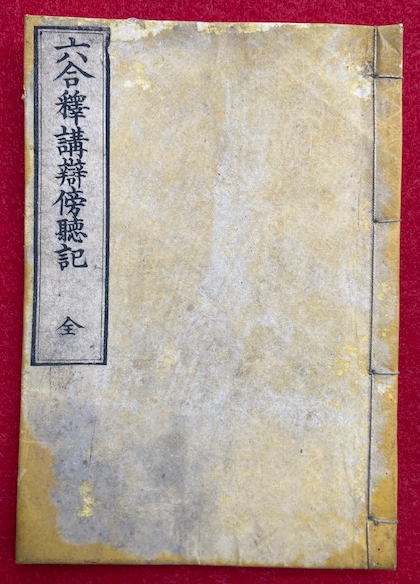 六合釋講辯傍聽記
全